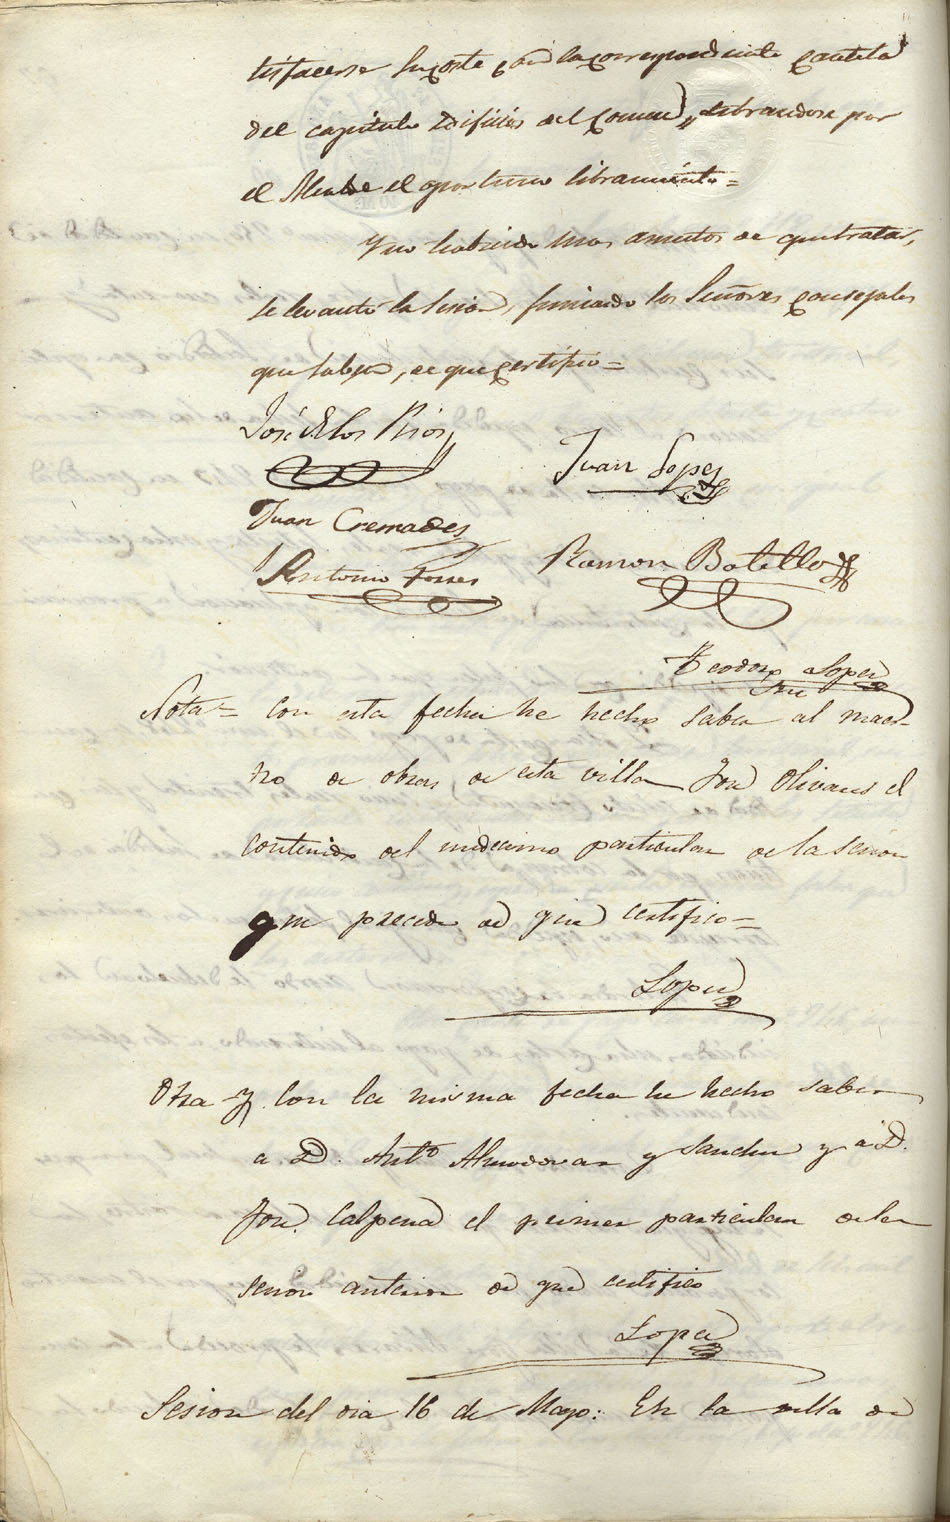 tisfacerse su coste con la correspondiente cautela
del capítulo Edificios del Comun, librandose por
el Alcalde el oportuno libramiento=
Y no habiendo mas asuntos de que tratar,
se levantó la sesion, firmando los Señores concejales
que saben, de que certifico=
José de los Rios
Juan Lopez
Juan Cremades
Antonio
Ramon Botella
Teodoro Lopez
Srio
Nota= Con esta fecha he hecho saber al maes-
tro de obras de esta villa José Olivares el
contenido del undecimo particular de la sesion
que precede de que certifico=
Lopez
Otra y Con la misma fecha he hecho saber
a D. Antº Almodovar y Sanchez y a D.
José Calpena el primer particular de la
sesion anterior de que certifico
Lopez
Sesion del dia 16 de Mayo: En la villa de